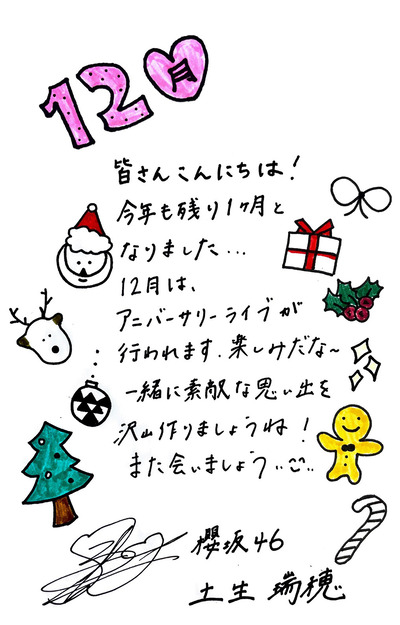 12月
皆さんこんにちは!
今年も残り1ヶ月と
なりました...
12月は、
アニバーサリーライブが
行われます.楽しみだな~
一緒に素敵な思い出を
沢山作りましょうね!
また会いましょう
櫻坂46
土生 瑞穂